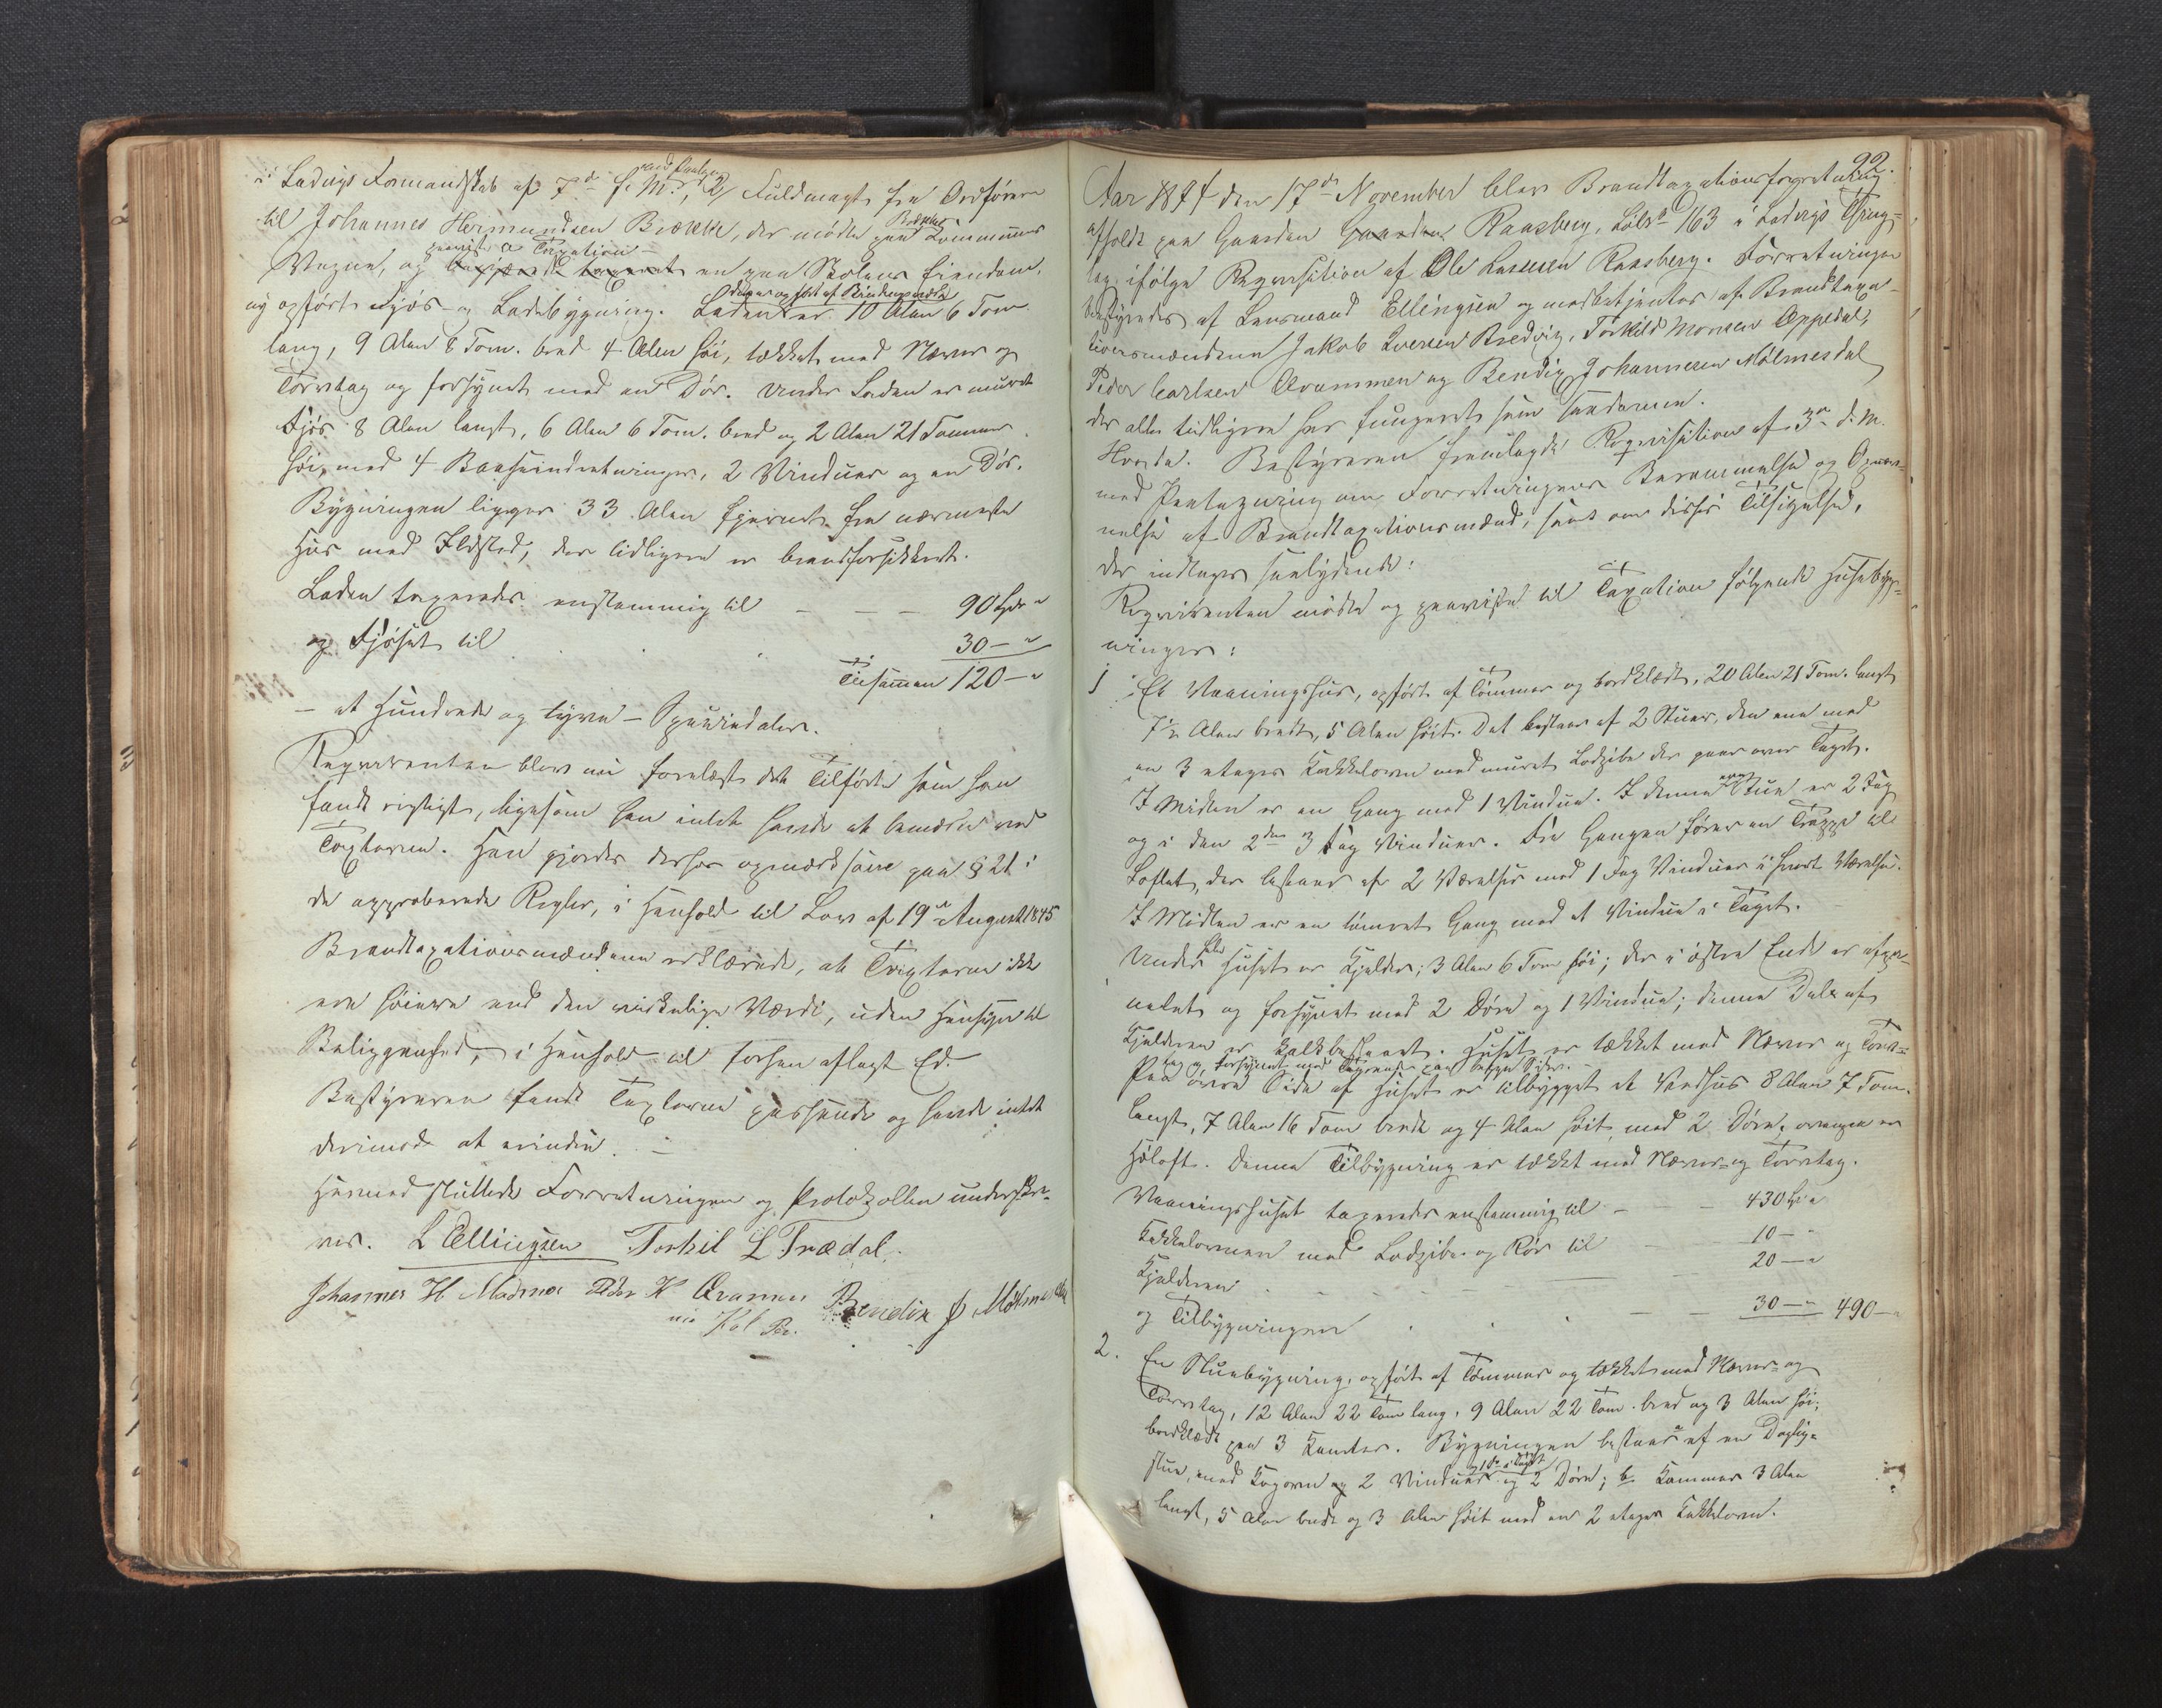 i Ladvigs Formandskab af 7de f. M., 2) Fuldmagt fra Ordføreren
til Johannes Hermundsen Brække, der mødte paa Kommunens
Vegne, og paaviste til Taxation en paa Skolens Eiendom
ny opført Fjøs- og Ladebygning. Laden er 10 Alen 6 Tom.
lang, 9 Alen 8 Tom. bred 4 Alen høi, tækket med Næver og
Torvtag og forsynet med en Dør. Under Laden er muret
Fjøs 8 Alen langt, 6 Alen 6 Tom. bred og 2 Alen 21 Tommer
høi, med 4 Baaseindretninger, 2 Vinduer og en Dør.
Bygningen ligger 33 Alen fjernet fra nærmeste
Hus med Ildsted, der tidligere er brandforsikkret.
Laden taxeredes enstemmig til - - - 90 Spd "
og Fjøset til 30 - "
Tilsammen 120 - "
- et Hundrede og tyve - Speciedaler.
Reqvirenten blev nu forelæst det Tilførte som han
fandt rigtigt, ligesom han intet havde at bemærke ved
Taxterne. Han gjordes derhos opmærksom paa § 21 i
de approberede Regler, i Henhold til Lov af 19de August 1845
Brandtaxationsmændene erklærede, at Taxterne ikke
ere høiere end den virkelige Værdi, uden Hensyn til
Beliggenhed, i Henhold til forhen aflagt Ed.
Bestyreren fandt Taxterne passende og havde intet
derimod at erindre. -
Hermed sluttede Forretningen og Protokollen underskre-
ves. L Ellingsen Torkil L Trædal.
Johannes H. Peder K Avamen Bendix J Mølmesdal
92.
Aar 1874 den 17de November blev Brandtaxationsforretning
afholdt paa Gaarden Gaarden Raasberg, Løbno 163 i Ladvigs Thing-
lag ifølge Reqvisition af Ole Lassesen Raasberg. Forretningen
bestyredes af Lensmand Ellingsen og medbetjentes af Brandtaxa-
tionsmændene Jakob Iversen Bredvig, Torkild Monsen Oppedal,
Peder Carlsen Avammen og Bendix Johannesen Mølmesdal
der alle tidligere har fungeret som saadanne.
Bestyreren fremlagde Reqvisition af 3de d. M.
med Paategning om Forretningens Berammelse og Opnæv-
nelse af Brandtaxationsmænd, samt om disses Tilsigelse,
der indtages saalydende:
Reqvirenten mødte og paaviste til Taxation følgende Husebyg-
ninger:
1 Et Vaaningshus, opført af Tømmer og bordklædt, 20 Alen 21 Tom. langt
7½ Alen bredt, 5 Alen høit. Det bestaar af 2 Stuer, den ene med
en 3 etages Kakkelovn med muret Lodpibe der gaar over Taget.
I Midten er en Gang med 1 Vindue. I denne Stue er 2 Fag
og i den 2den 3 Fag Vinduer. Fra Gangen fører en Trappe til
Loftet, der bestaar af 2 Værelser med 1 Fag Vinduer i hvert Værelse.
I Midten er en tømret Gang med et Vindue i Taget.
Under hele Huset er Kjelder, 3 Alen 6 Tom høi; der i østre Ende er afpa-
nelet og forsynet med 2 Døre og 1 Vindue; denne Dele af
Kjelderen er kalkbesl. Huset er tækket med Næver og Torv-
tag og forsynet med Tagrender paa begge Sider. -
Paa øvre Side af Huset er tilbygget et Vedhus 8 Alen 7 Tom.
langt, 7 Alen 16 Tom bredt og 4 Alen høit, med 2 Døre, ovenpaa er
Høloft. Denne Tilbygning er tækket med Næver- og Torvtag.
Vaaningshuset taxeredes enstemmig til - - 430 Spd "
Kakkelovnen med Lodpibe og Rør til 10 - "
Kjelderen 20 - "
og Tilbygningen 30 - " 490 - "
2. En Stuebygning, opført af Tømmer og tækket med Næver- og
Torvtag, 12 Alen 22 Tom lang, 9 Alen 22 Tom. bred og 3 Alen høi;
bordklædt paa 3 Kanter. Bygningen bestaar af en Daglig-
stue, med Bagovn og 2 Vinduer og 1 do i Taget og 2 Døre; b. Kammer 3 Alen
langt, 5 Alen bredt og 3 Alen høit med en 2 etages Kakkelovn.